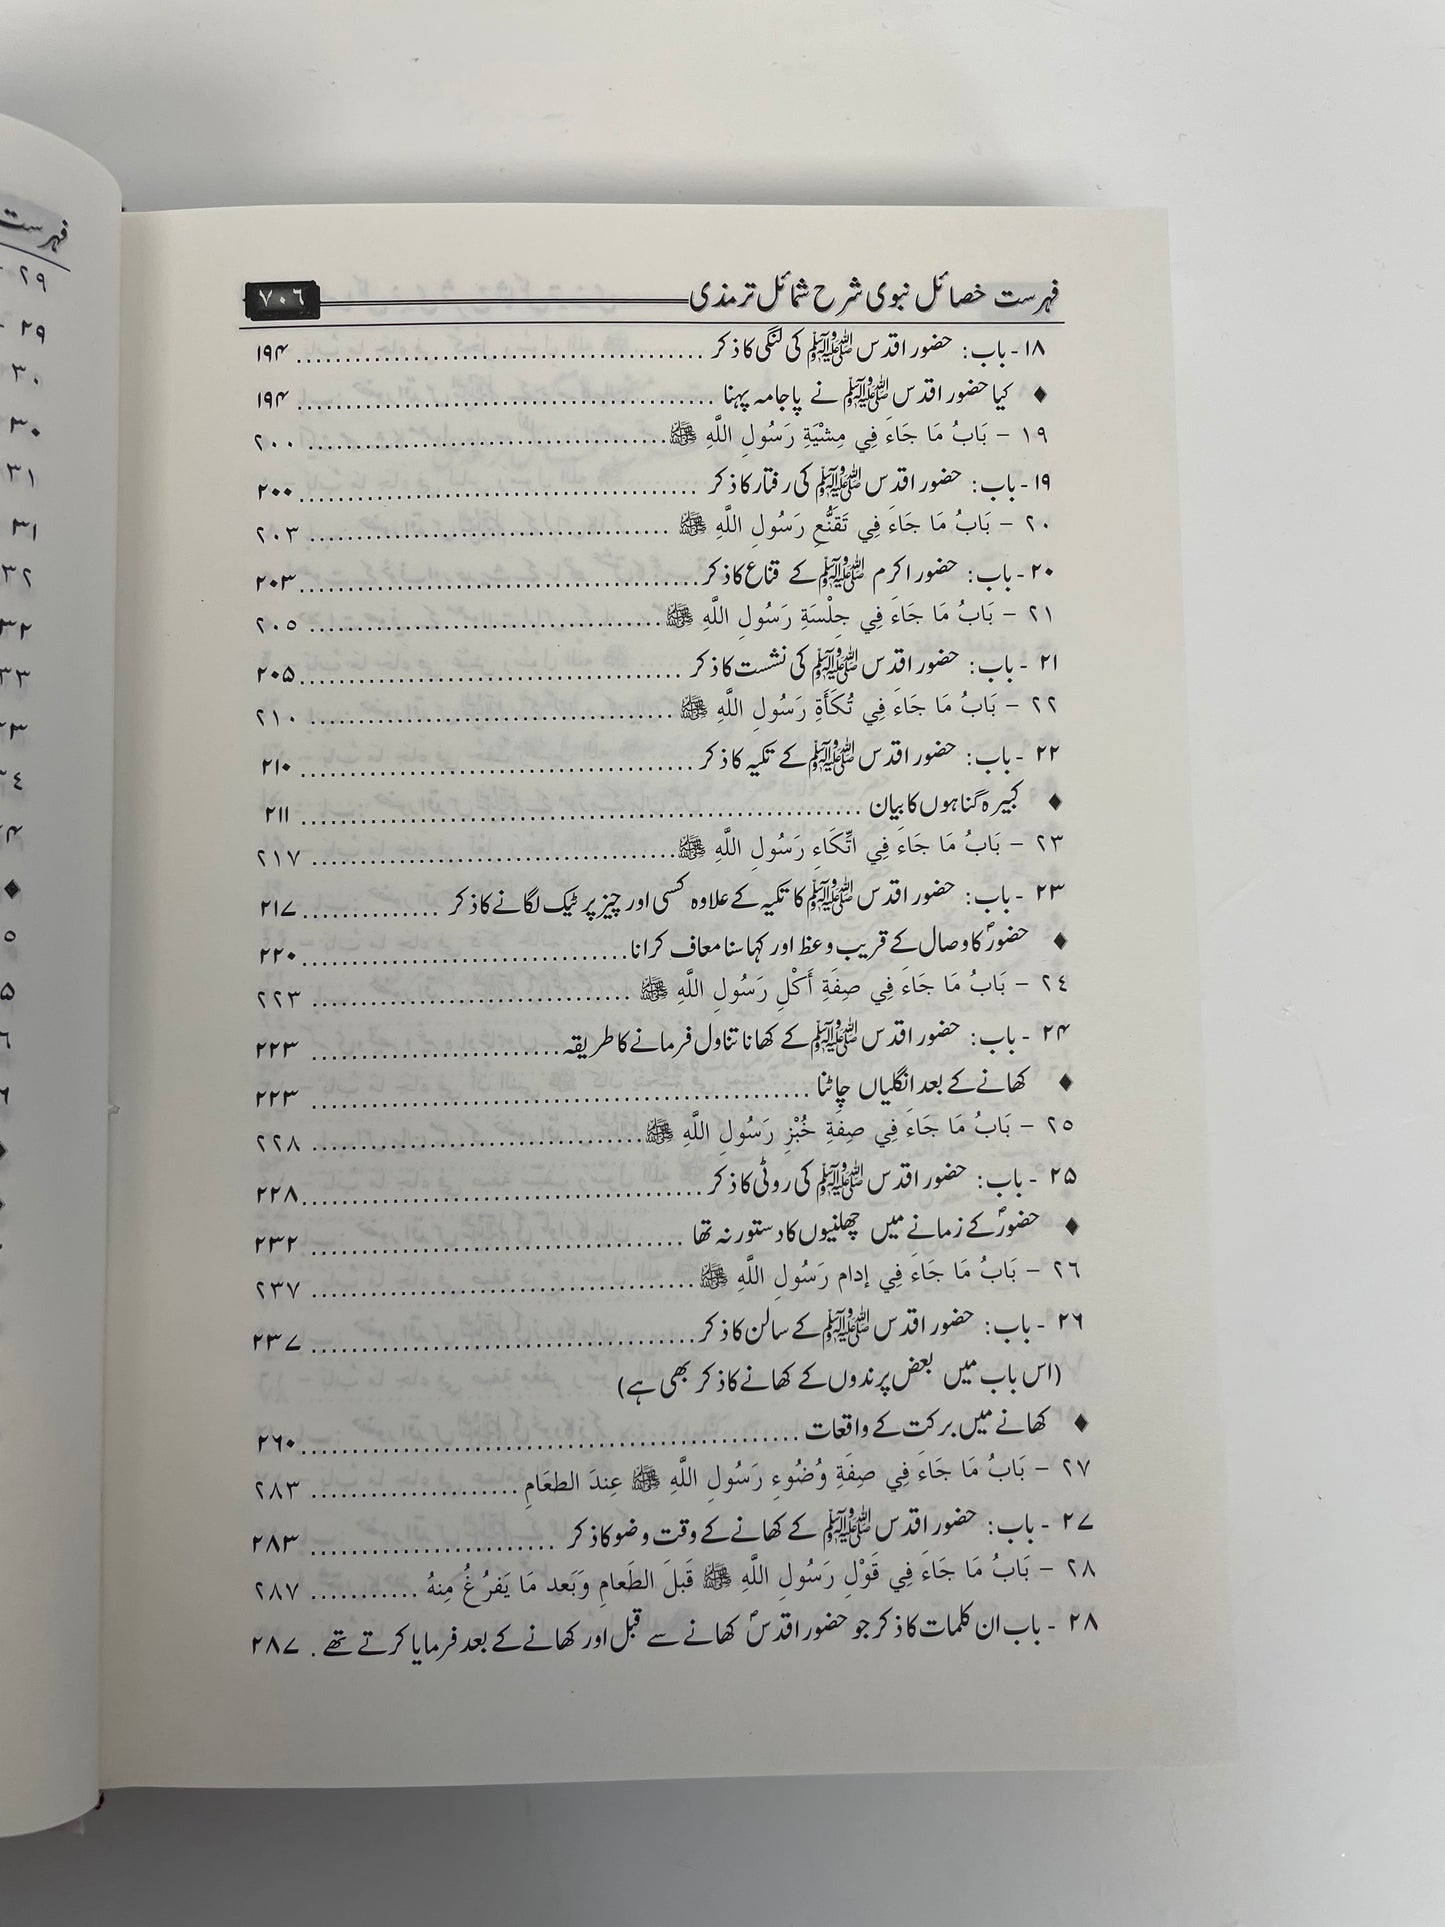 فہرست خصائل نبوی شرح شمائل ترمذی ۷۰۶
۱۸ - باب: حضور اقدس ﷺ کی لنگی کا ذکر ........ ۱۹۴
♦ کیا حضور اقدس ﷺ نے پاجامہ پہنا ........ ۱۹۴
١٩ - بَابُ مَا جَاءَ فِي مِشْيَةِ رَسُولِ اللَّهِ ﷺ ........ ٢٠٠
۱۹ - باب: حضور اقدس ﷺ کی رفتار کا ذکر ........ ۲۰۰
٢٠ - بَابُ مَا جَاءَ فِي تَقَنُّعِ رَسُولِ اللَّهِ ﷺ ........ ٢٠٣
۲۰ - باب: حضور اکرم ﷺ کے قناع کا ذکر ........ ۲۰۳
٢١ - بَابُ مَا جَاءَ فِي جِلْسَةِ رَسُولِ اللَّهِ ﷺ ........ ٢٠٥
۲۱ - باب: حضور اقدس ﷺ کی نشست کا ذکر ........ ۲۰۵
٢٢ - بَابُ مَا جَاءَ فِي تُكَأَةِ رَسُولِ اللَّهِ ﷺ ........ ٢١٠
۲۲ - باب: حضور اقدس ﷺ کے تکیہ کا ذکر ........ ۲۱۰
♦ کبیرہ گناہوں کا بیان ........ ۲۱۱
٢٣ - بَابُ مَا جَاءَ فِي اتِّكَاءِ رَسُولِ اللَّهِ ﷺ ........ ٢١٧
۲۳ - باب: حضور اقدس ﷺ کا تکیہ کے علاوہ کسی اور چیز پر ٹیک لگانے کا ذکر ........ ۲۱۷
♦ حضورؐ کا وصال کے قریب وعظ اور کہا سنا معاف کرانا ........ ۲۲۰
٢٤ - بَابُ مَا جَاءَ فِي صِفَةِ أَكْلِ رَسُولِ اللَّهِ ﷺ ........ ٢٢٣
۲۴ - باب: حضور اقدس ﷺ کے کھانا تناول فرمانے کا طریقہ ........ ۲۲۳
♦ کھانے کے بعد انگلیاں چاٹنا ........ ۲۲۳
٢٥ - بَابُ مَا جَاءَ فِي صِفَةِ خُبْزِ رَسُولِ اللَّهِ ﷺ ........ ٢٢٨
۲۵ - باب: حضور اقدس ﷺ کی روٹی کا ذکر ........ ۲۲۸
♦ حضورؐ کے زمانے میں چھلنیوں کا دستور نہ تھا ........ ۲۳۲
٢٦ - بَابُ مَا جَاءَ فِي إدام رَسُولِ اللَّهِ ﷺ ........ ٢٣٧
۲۶ - باب: حضور اقدس ﷺ کے سالن کا ذکر ........ ۲۳۷
(اس باب میں بعض پرندوں کے کھانے کا ذکر بھی ہے)
♦ کھانے میں برکت کے واقعات ........ ۲۶۰
٢٧ - بَابُ مَا جَاءَ فِي صِفَةِ وُضُوءِ رَسُولِ اللَّهِ ﷺ عِندَ الطعَامِ ........ ٢٨٣
۲۷ - باب: حضور اقدس ﷺ کے کھانے کے وقت وضو کا ذکر ........ ۲۸۳
٢٨ - بَابُ مَا جَاءَ فِي قَوْلِ رَسُولِ اللَّهِ ﷺ قَبلَ الطَعامِ وَبَعد مَا يَفرُغُ مِنهُ ........ ٢٨٧
۲۸ - باب ان کلمات کا ذکر جو حضور اقدسؐ کھانے سے قبل اور کھانے کے بعد فرمایا کرتے تھے . ۲۸۷